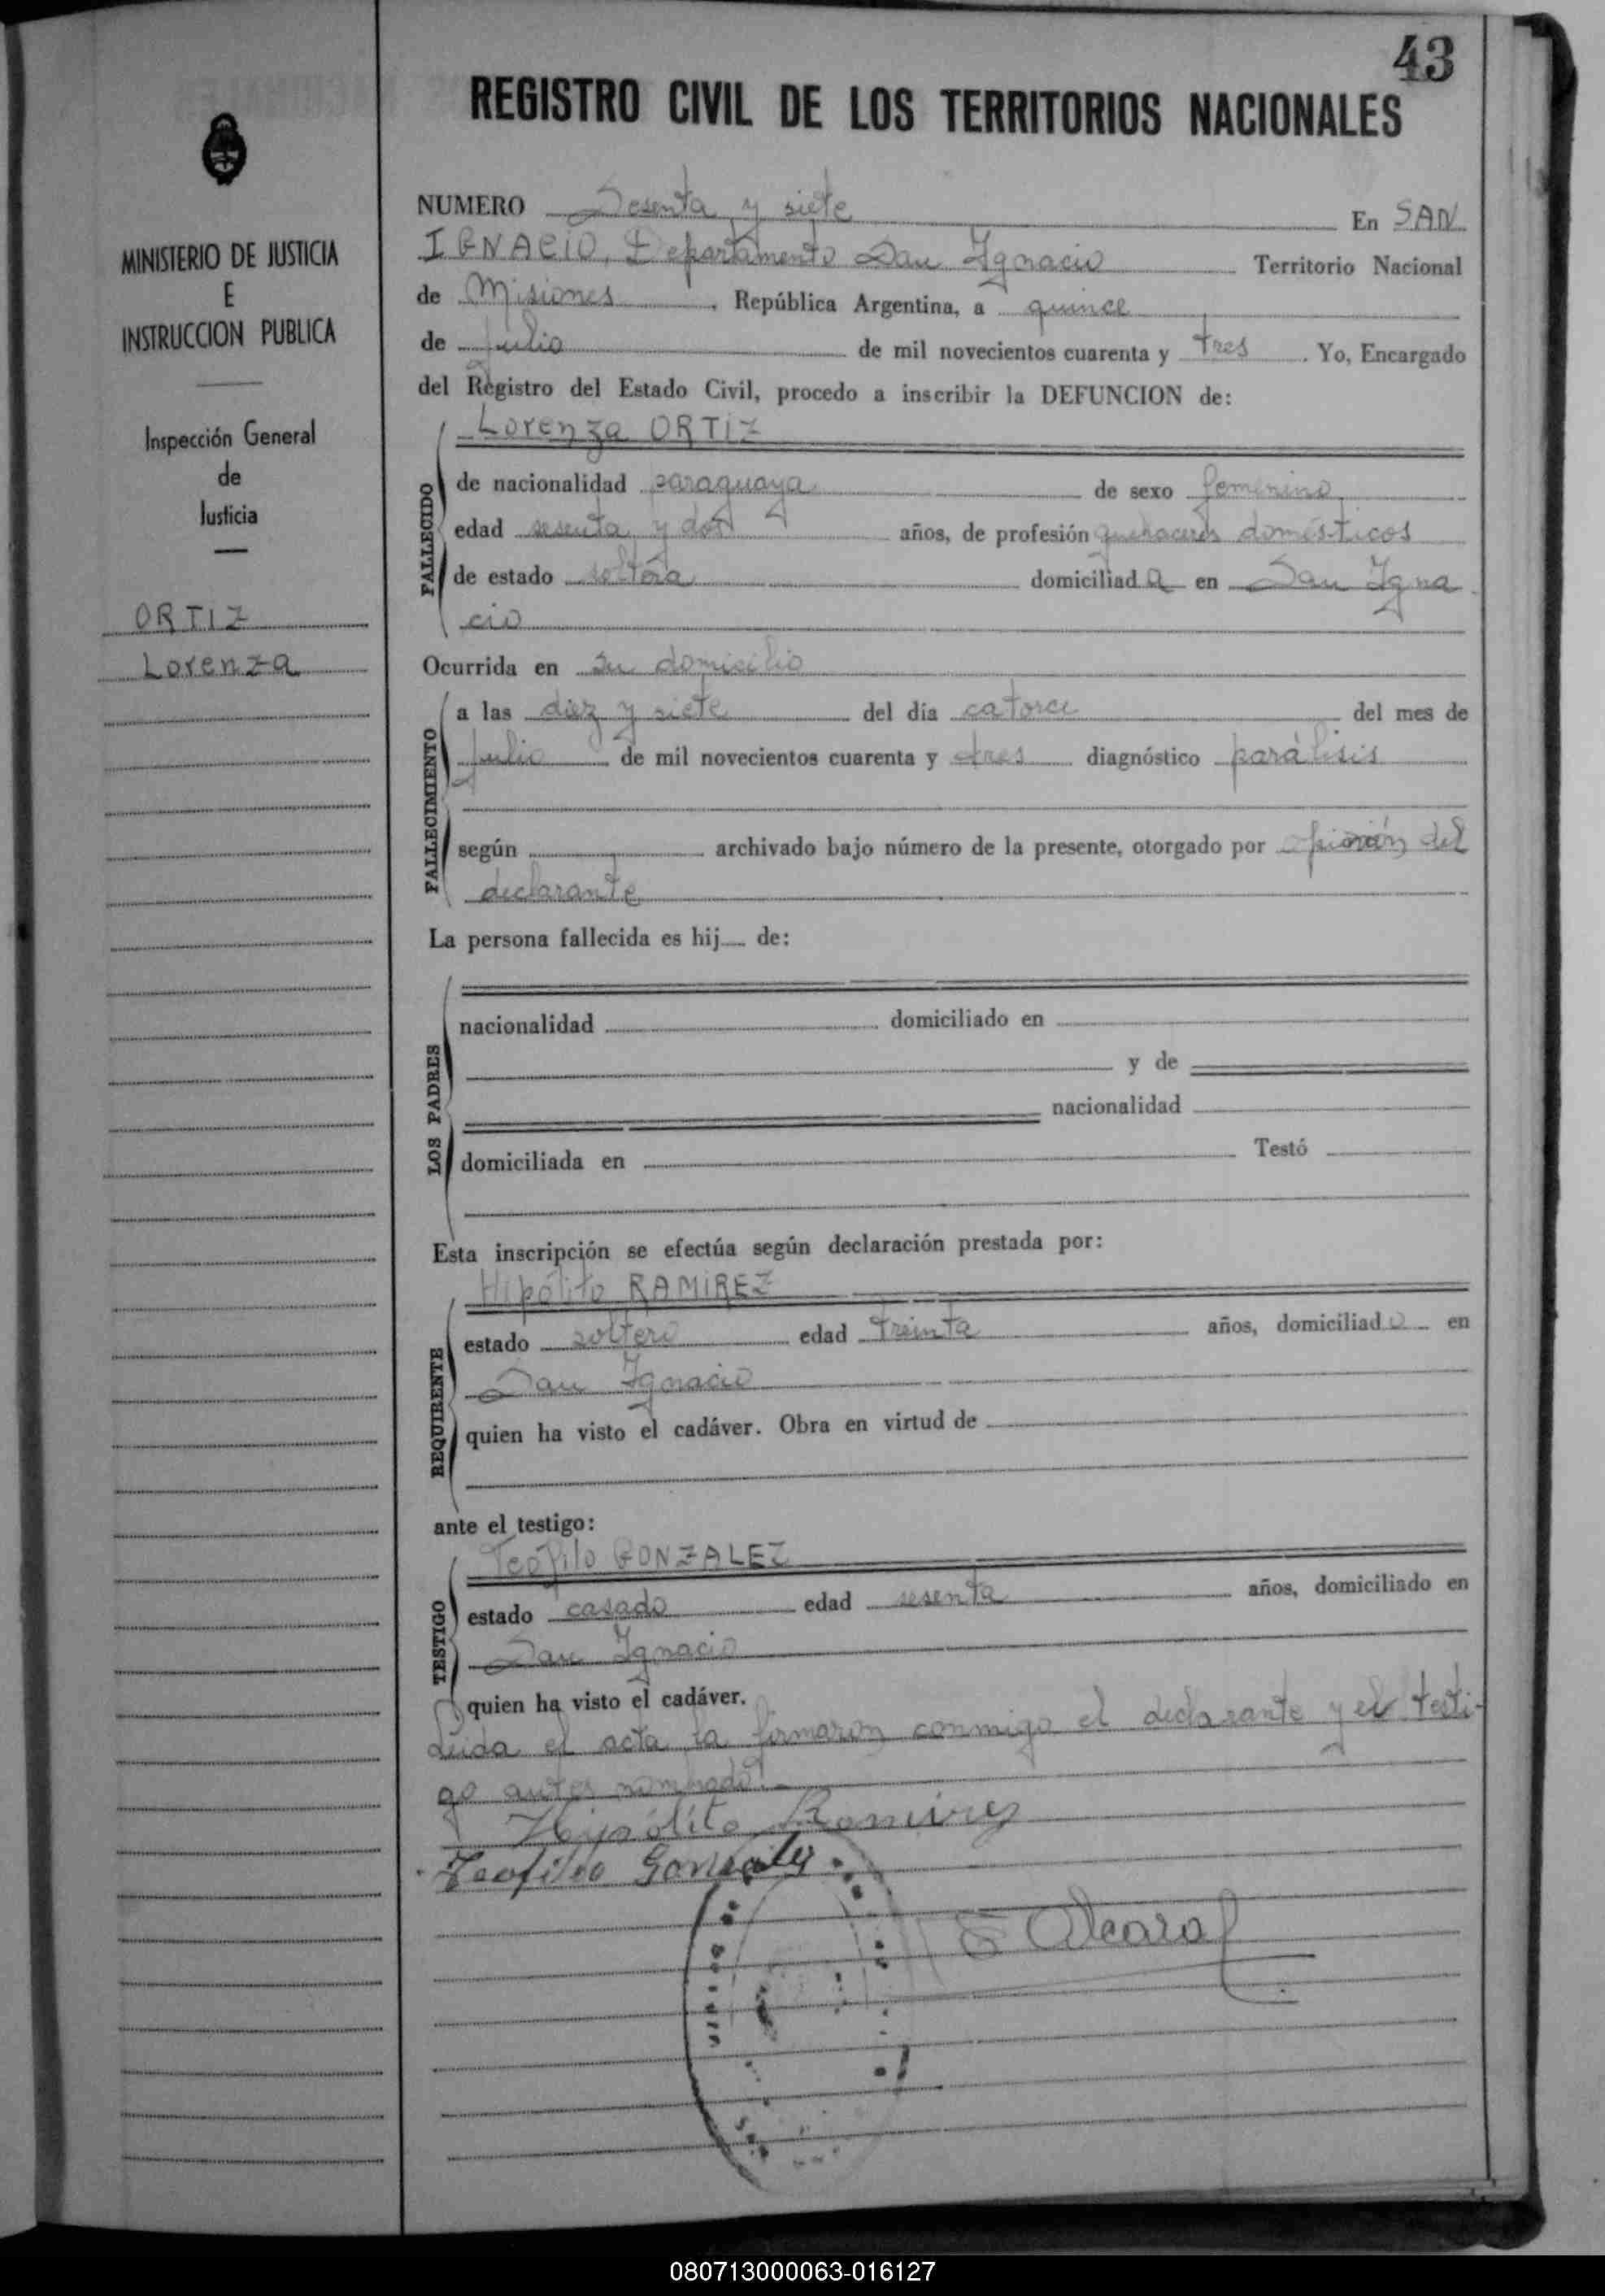 43
REGISTRO CIVIL DE LOS TERRITORIOS NACIONALES
MINISTERIO DE JUSTICIA
E
INSTRUCCION PUBLICA
Inspección General
de
Justicia
ORTIZ
Lorenza
NUMERO Sesenta y siete En SAN
IGNACIO, Departamento San Ignacio Territorio Nacional
de Misiones, República Argentina, a quince
de julio de mil novecientos cuarenta y tres. Yo, Encargado
del Registro del Estado Civil, procedo a inscribir la DEFUNCION de:
Lorenza ORTIZ
FALLECIDO
de nacionalidad paraguaya de sexo femenino
edad sesenta y dos años, de profesión quehaceres domésticos
de estado soltera domiciliada en San Igna
cio
Ocurrida en su domicilio
FALLECIMIENTO
a las diez y siete del día catorce del mes de
julio de mil novecientos cuarenta y tres diagnóstico parálisis
según archivado bajo número de la presente, otorgado por opinión del
declarante
La persona fallecida es hij de:
LOS PADRES
nacionalidad domiciliado en
y de
nacionalidad
domiciliada en Testó
Esta inscripción se efectúa según declaración prestada por:
Hipólito RAMIREZ
REQUIRENTE
estado soltero edad treinta años, domiciliado en
San Ignacio
quien ha visto el cadáver. Obra en virtud de
ante el testigo:
Teófilo GONZALEZ
TESTIGO
estado casado edad sesenta años, domiciliado en
San Ignacio
quien ha visto el cadáver.
Leida el acta la firmaron conmigo el declarante y el testi-
go antes nombrado.-
Hipólito Ramirez
Teofilo Gonzalez
E Alcaraz
080713000063-016127